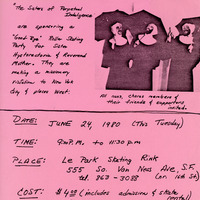 "The Sisters of Perpetual
Indulgence
are sponsoring a
"Good Bye" Roller Skating
Party for Sister
Hysterectoria & Reverend
Mother. They are
making a missionary
visitation to New York
City & places West.
All nuns, choirs members &
their friends & supporters
invited.
DATE: JUNE 24, 1980 (This Tuesday)
TIME: 9 P.M. to 11:30 p.m
PLACE: Le Park Skating Rink
555 So. Van Ness Ave, S.F.
tel. 863-3088 (on 16th St)
COST: $4.00 (includes admission & skate
rental)